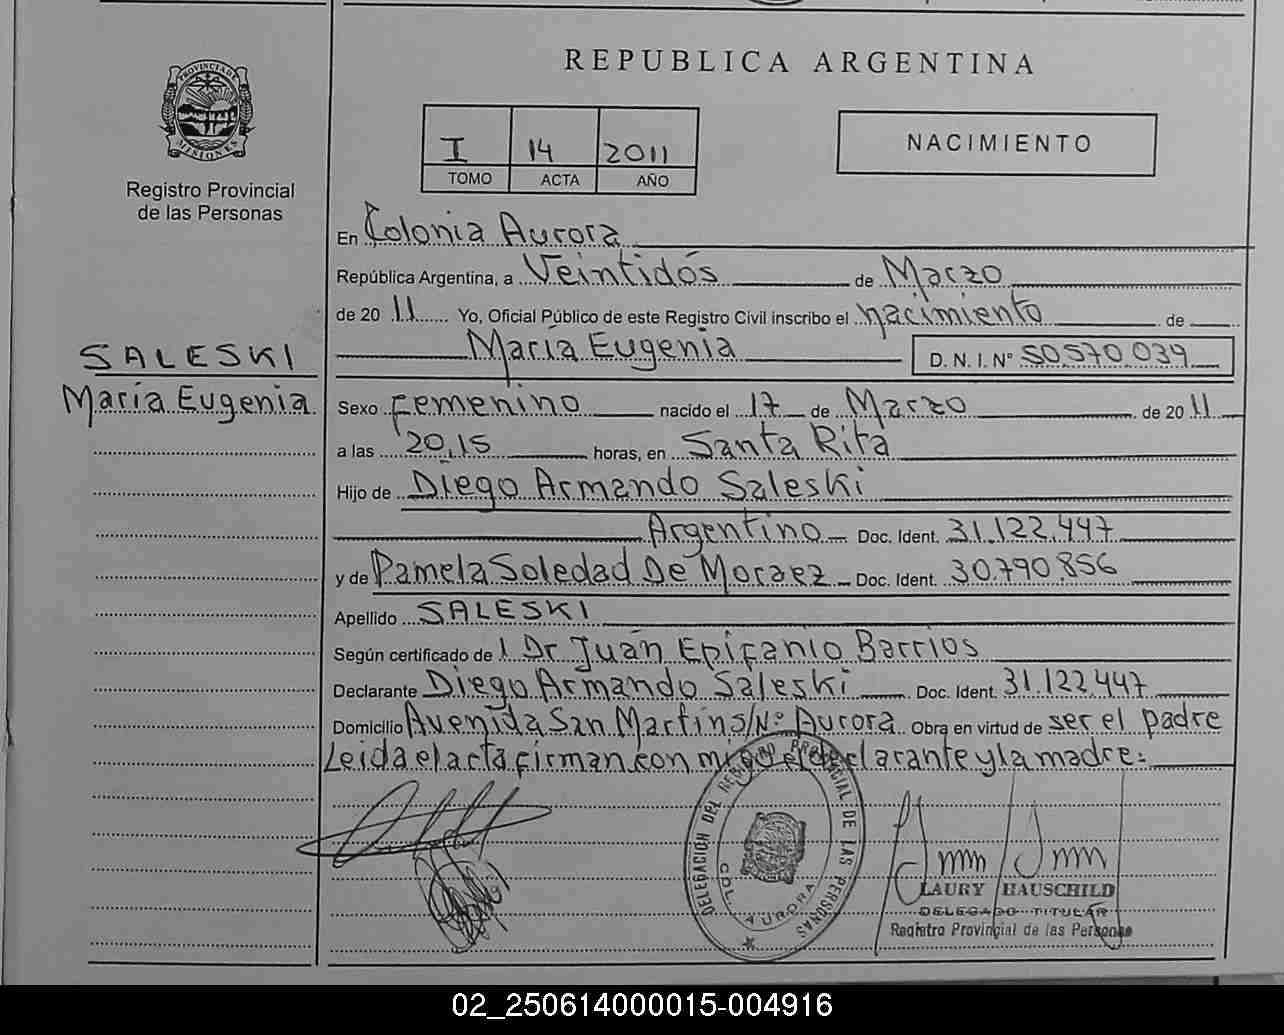 REPUBLICA ARGENTINA
PROVINCIA DE MISIONES
Registro Provincial
de las Personas
I 14 2011
TOMO ACTA AÑO
NACIMIENTO
En Colonia Aurora
República Argentina, a Veintidós de Marzo
de 2011 Yo, Oficial Público de este Registro Civil inscribo el nacimiento de
María Eugenia D.N.I. Nº 50.570.039
SALESKI
María Eugenia
Sexo Femenino nacido el 17 de Marzo de 2011
a las 20,15 horas, en Santa Rita
Hijo de Diego Armando Saleski
Argentino Doc. Ident. 31.122.447
y de Pamela Soledad De Moraez Doc. Ident. 30.790.856
Apellido SALESKI
Según certificado de Dr Juán Epifanio Barrios
Declarante Diego Armando Saleski Doc. Ident. 31.122.447
Domicilio Avenida San Martín s/Nº Aurora. Obra en virtud de ser el padre
Leida el acta firman conmigo el declarante y la madre:
DELEGACIÓN DEL REGISTRO PROVINCIAL DE LAS PERSONAS
COL. AURORA
LAURY HAUSCHILD
DELEGADO TITULAR
Registro Provincial de las Personas
02_250614000015-004916